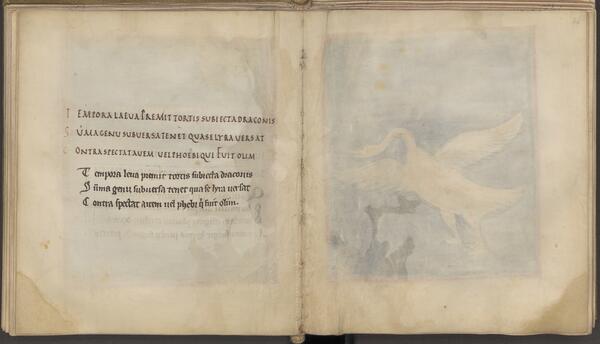 TEMPORA LAEUA PREMIT TORTIS SUBIECTA DRACONIS
SUMA GENU SUBUERSA TENET QUA SE LYRA UERSAT
CONTRA SPECTAT AUEM UEL PHOEBI QUI FUIT OLIM
Tempora leva premit tortis subiecta draconis
Sūma genu subversa tenet qua se lyra versat
Contra spectat avem vel phebi q̄ fuit olim.